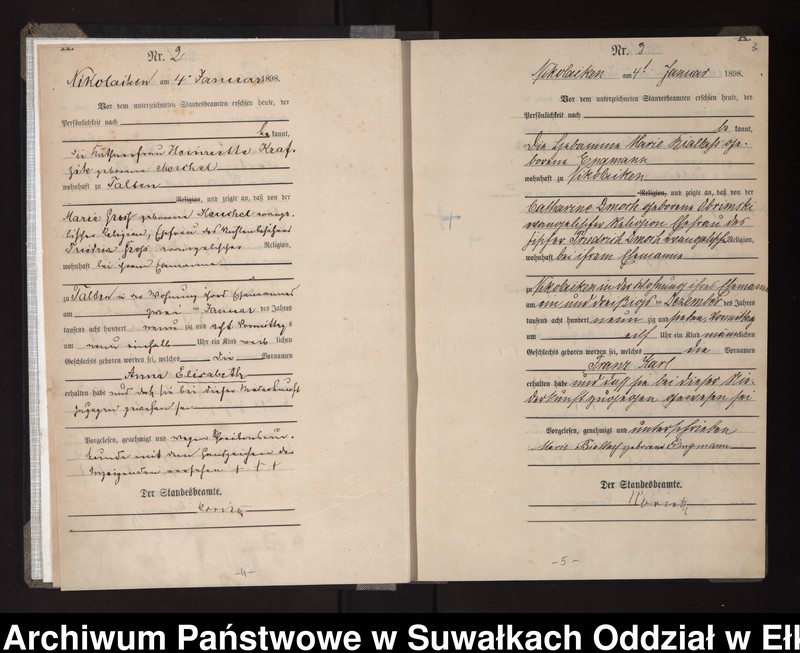 Nr. 2
Nikolaiken am 4. Januar 1898.
Vor dem unterzeichneten Standesbeamten erschien heute, der
Persönlichkeit nach
be kannt,
die Henriette
geborene
wohnhaft zu Talten
Religion, und zeigte an, daß von der
Marie geborene evange-
lischer Religion, Ehefrau des
Friedrich evangelischer Religion,
wohnhaft bei ihrem Ehemanne
zu Talten in der Wohnung ihres Ehemannes
am zwei ten Januar des Jahres
tausend acht hundert neun zig und acht Vormittags
um neun einhalb Uhr ein Kind weib lichen
Geschlechts geboren worden sei, welches die Vornamen
Anna Elisabeth
erhalten habe und daß sie bei dieser Niederkunft
zugegen gewesen sei
Vorgelesen, genehmigt und wegen Schreibensun-
kunde mit dem Handzeichen der
Anzeigenden versehen † † †
Der Standesbeamte.
-4-
Nr. 3
3
Nikolaiken am 4t Januar 1898.
Vor dem unterzeichneten Standesbeamten erschien heute, der
Persönlichkeit nach
be kannt,
die Hebamme Marie Biallass ge-
borene Engmann
wohnhaft zu Nikolaiken
Religion, und zeigte an, daß von der
Catharine Dmoch geborene Obrimski
evangelischer Religion Ehefrau des
Friedrich Dmoch evangelisch Religion,
wohnhaft bei ihrem Ehemanne
zu Nikolaiken in der Wohnung ihres Ehemanns
am ein und dreißigs ten Dezember des Jahres
tausend acht hundert neun zig und sieben Vormittag
um eilf Uhr ein Kind männ lichen
Geschlechts geboren worden sei, welches die Vornamen
Franz Karl
erhalten habe und daß sie bei dieser Nie-
derkunft zugegen gewesen sei
Vorgelesen, genehmigt und unterschrieben
Marie Biallass geborene Engmann
Der Standesbeamte.
-5-
Archiwum Państwowe w Suwałkach Oddział w Ełk